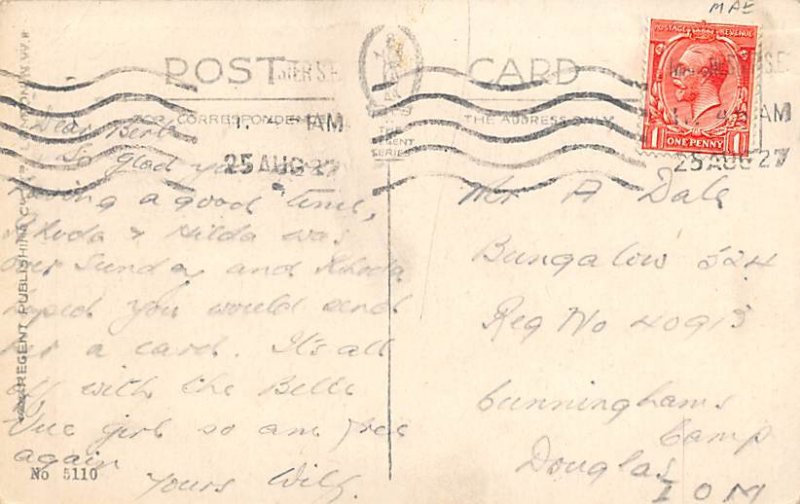 MAE
POST CARD
FOR CORRESPONDENCE
THE ADDRESS ONLY
THE
REGENT
SERIES
POSTAGE REVENUE
1 ONE PENNY 1
AM
25 AUG 27
AM
25 AUG 27
Dear Bert
So glad you
having a good time,
Rhoda & Hilda was
over Sunday and Rhoda
hoped you would send
her a card. It's all
off with the Belle
Vue girl so am free
again
Yours Wilf.
Mr A Dale
Bungalow 524
Reg No 40913
Cunninghams
Camp
Douglas
I O M
REGENT PUBLISHING
No 5110